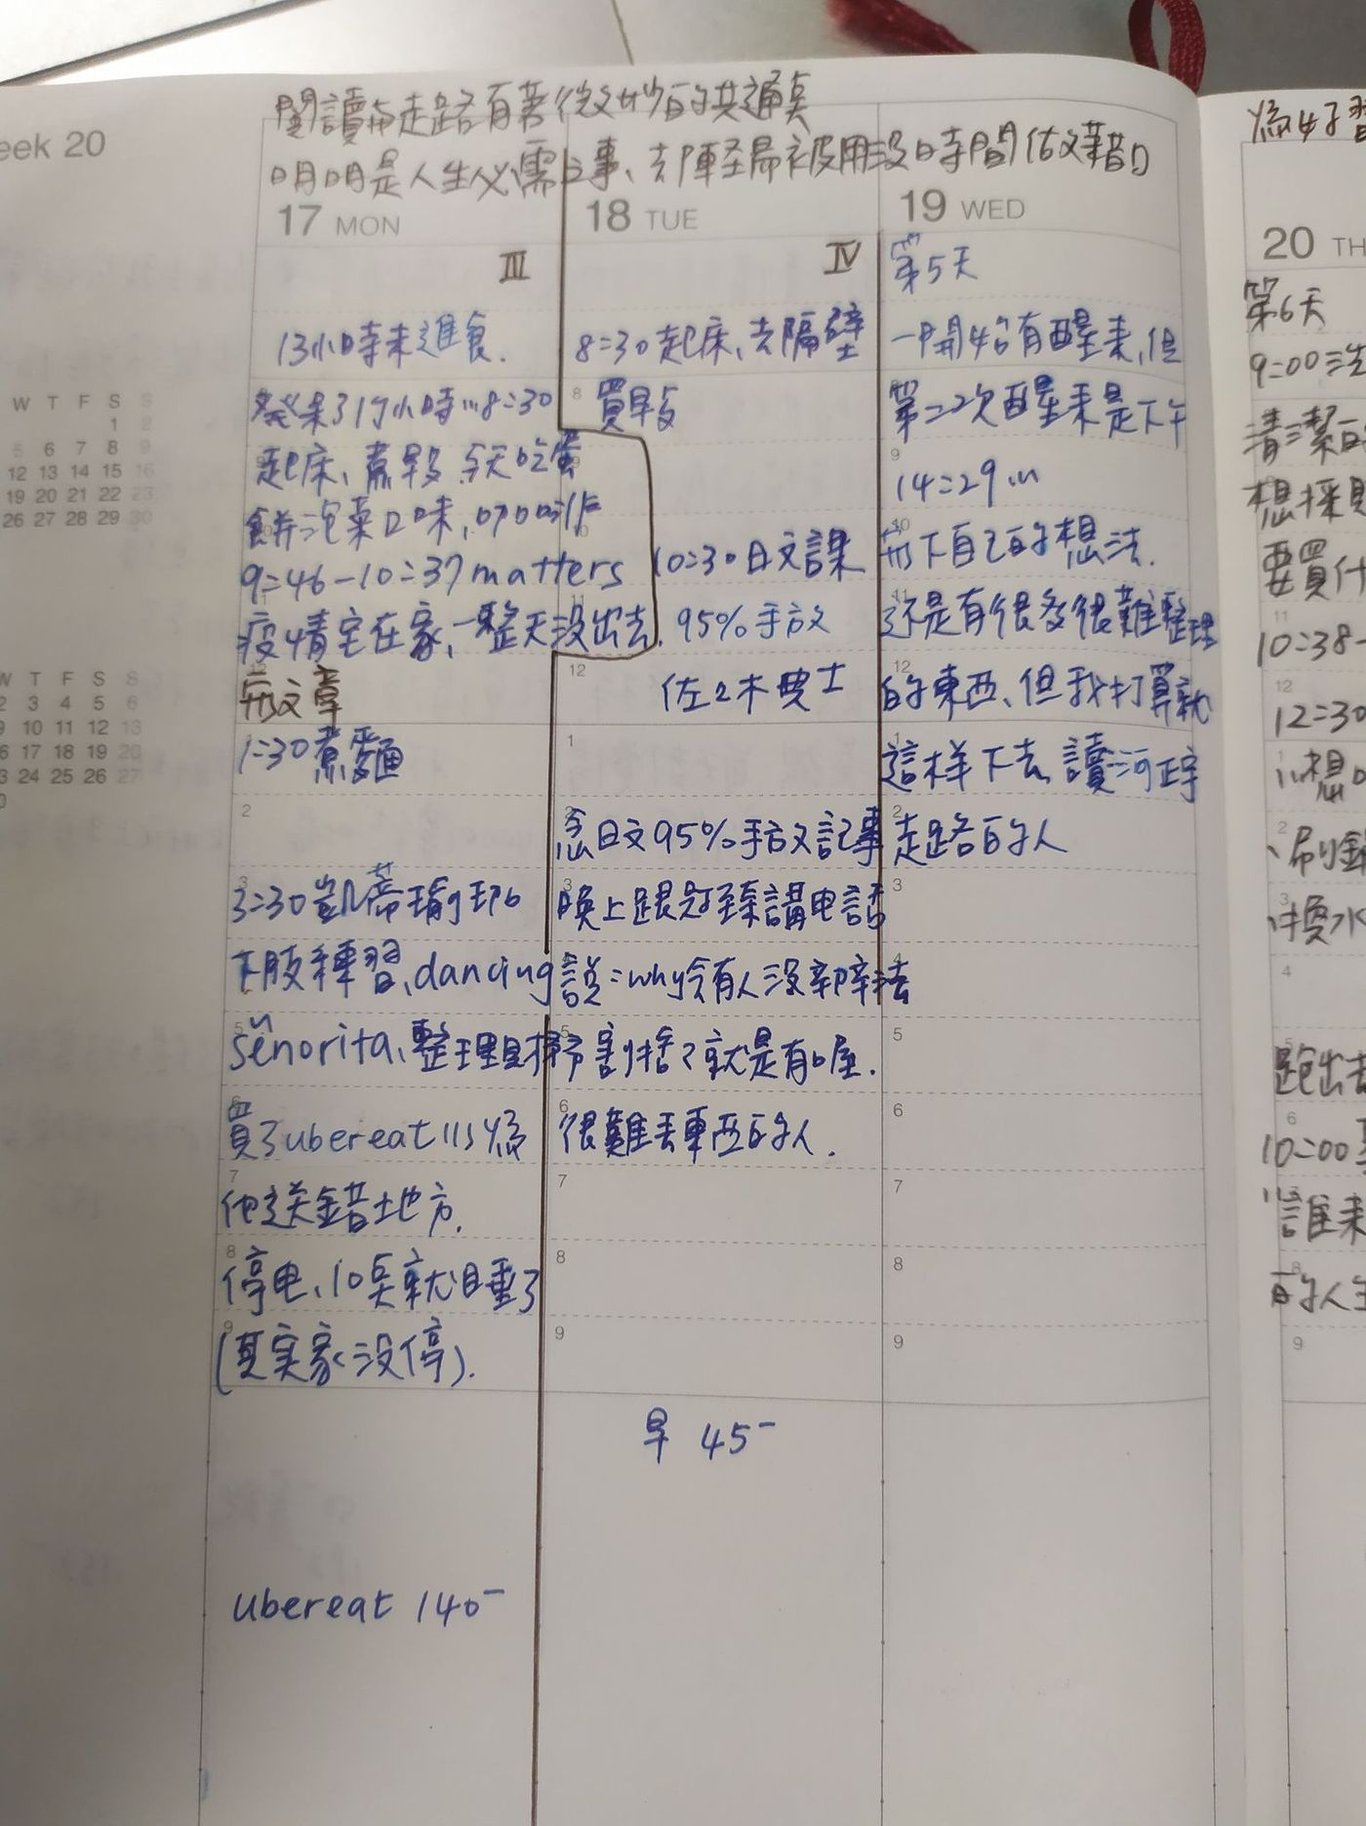 閱讀與走路有著微妙的共通點
明明是人生必需之事、去陣輕局被用沒時間做藉口
eek 20
W T F S S
1 2
5 6 7 8 9
12 13 14 15 16
19 20 21 22 23
26 27 28 29 30
W T F S S
2 3 4 5 6
9 10 11 12 13
16 17 18 19 20
23 24 25 26 27
17 MON
III
13小時未進食.
發呆了1個小時…8:30
起床、煮早餐.今天吃蛋
餅泡菜口味,
9:46-10:37 matters
疫情宅在家,一整天沒出去.
寫文章
1:30 煮麵
2
3:30 凱蒂瑜珈
下肢練習、dancing
señorita、整理財務
買了ubereat…为
他送錯地方.
停电、10点就睡了
(其实家く沒停).
ubereat 140-
18 TUE
IV
8:30 起床、去隔壁
買早餐
10:30日文課
95%手放
佐々木典士
12
1
念日文95%手放記事
晚上跟冠臻講电話
說:why会有人沒辦法
割捨?就是有喔.
很難丟東西的人.
7
8
9
早 45-
19 WED
第5天
一開始有醒来,但
第二次醒来是下午
14:29…
寫下自己的想法.
还是有很多很難整理
的東西、但我打算就
這样下去、讀河正宇
走路的人
3
4
5
6
7
8
9
為好習
20 TH
第6天
9:00洗
清潔
想採買
要買什
10:38-
12
12:30
…想
、刷
、換水
4
跑出去
6
10:00
誰来
的人生
9